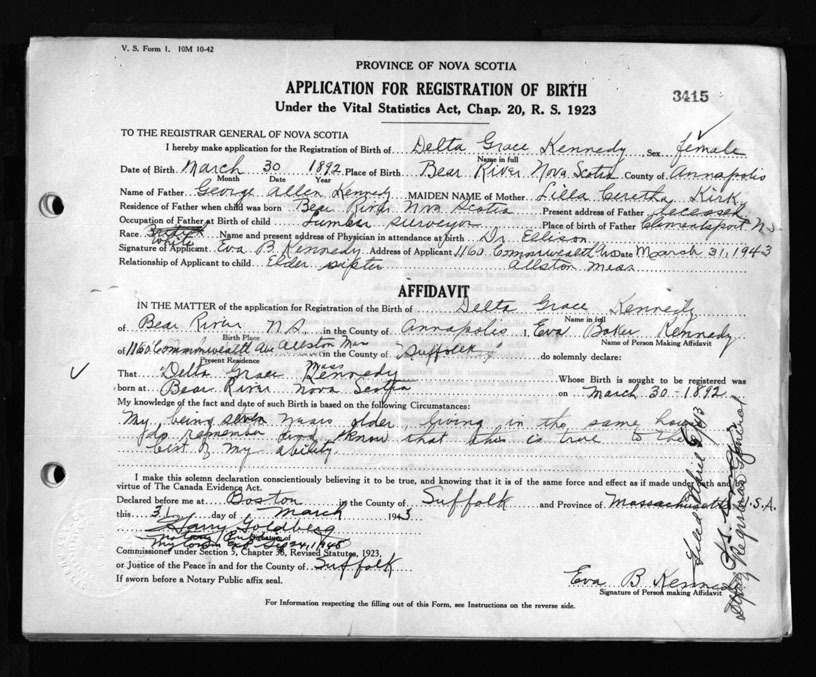 V. S. Form 1. 10M 10-42
PROVINCE OF NOVA SCOTIA
APPLICATION FOR REGISTRATION OF BIRTH
3415
Under the Vital Statistics Act, Chap. 20, R. S. 1923
TO THE REGISTRAR GENERAL OF NOVA SCOTIA
I hereby make application for the Registration of Birth of Delta Grace Kennedy, Sex female
Name in full
Date of Birth March 30 1892 Place of Birth Bear River Nova Scotia County of Annapolis
Month Date Year
Name of Father George Allen Kennedy MAIDEN NAME of Mother Lilla Ceretha Kirk
Residence of Father when child was born Bear River Nova Scotia Present address of Father deceased
Occupation of Father at Birth of child Lumber surveyor Place of birth of Father Clementsport N S
Race white Name and present address of Physician in attendance at birth Dr Ellison
Signature of Applicant Eva B. Kennedy Address of Applicant 1160 Commonwealth Av Date March 31, 1943
Relationship of Applicant to child Elder sister Allston Mass
AFFIDAVIT
IN THE MATTER of the application for Registration of the Birth of Delta Grace Kennedy
Name in full
of Bear River N S. in the County of Annapolis I, Eva Baker Kennedy
Birth Place Name of Person Making Affidavit
of 1160 Commonwealth Av Allston Mass in the County of Suffolk do solemnly declare:
Present Residence Mass
That Delta Grace Kennedy Whose Birth is sought to be registered was
born at Bear River Nova Scotia on March 30 - 1892
My knowledge of the fact and date of such Birth is based on the following Circumstances:
My being seven years older, living in the same house
I remember and know that this is true to the
best of my ability.
I make this solemn declaration conscientiously believing it to be true, and knowing that it is of the same force and effect as if made under oath and
virtue of The Canada Evidence Act.
Declared before me at Boston in the County of Suffolk and Province of Massachusetts U.S.A.
this 31 day of March 1943
Harry Goldberg
Notary Public
Commissioner under Section 5, Chapter 38, Revised Statutes, 1923,
or Justice of the Peace in and for the County of Suffolk
If sworn before a Notary Public affix seal.
Eva B. Kennedy
Signature of Person making Affidavit
For Information respecting the filling out of this Form, see Instructions on the reverse side.
Filed April
Dep Registrar General